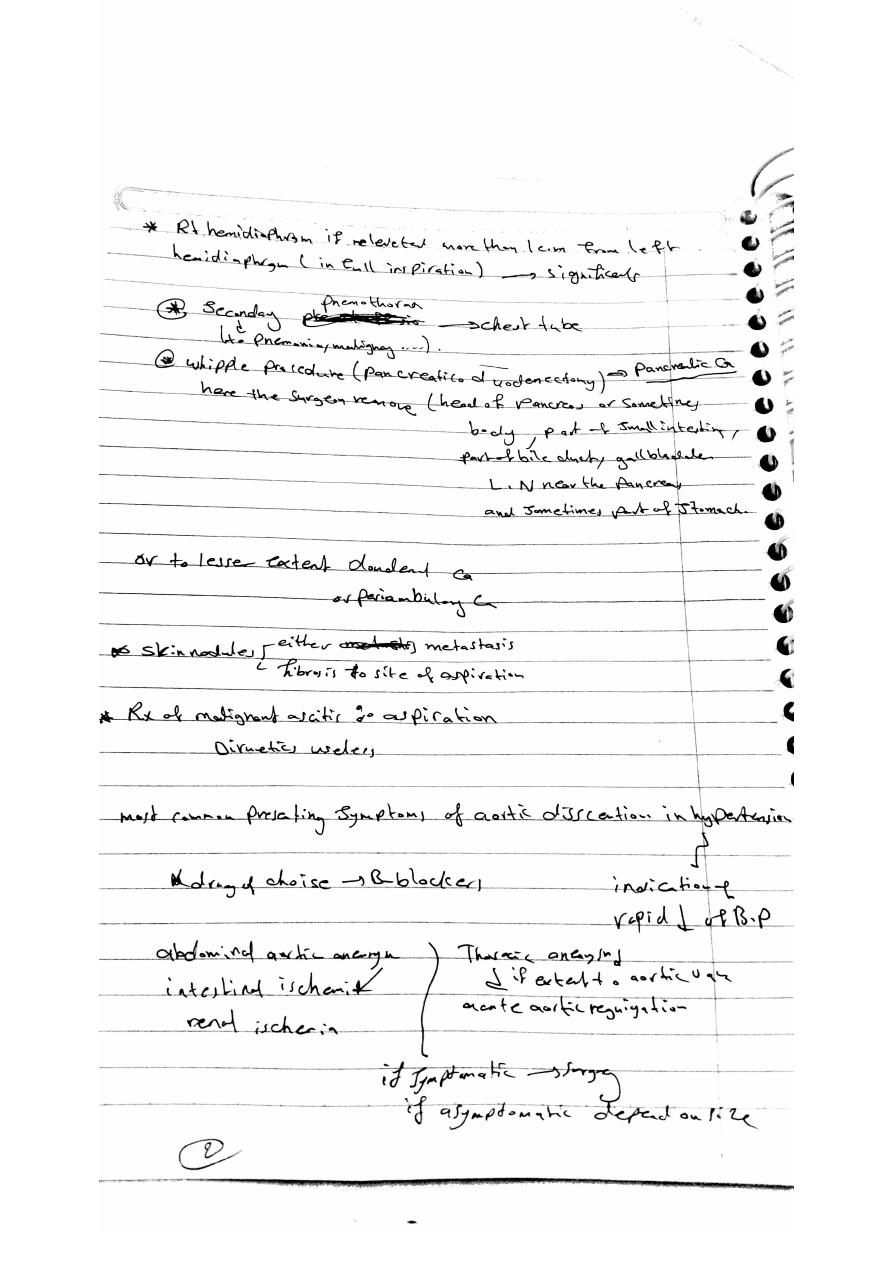 * Rt hemidiaphrgm if relevated more than 1 cm from left
hemidiaphrgm ( in full inspiration ) → significants
* Seconday pnemothorax → chest tube
↳ to pnemonia, malignay .... ) .
* whipple procedure ( pancreatico duodenectomy ) → Pancreatic Ca
here the surgeon remove ( head of pancreas or sometimes
body , part of small intestin ,
part of bile duct, gallbladder
L.N near the pancreas
and sometimes part of stomach.
or to lesser extent doudenal Ca
or periambulary Ca
* skin nodules either metastasis
fibrosis to site of aspiration
* Rx of malignant ascitis : aspiration
Diruetics useless
most common presating symptoms of aortic disscation in hypertension
* drug of choise → B-blockers
indication of
rapid ↓ of B.P
abdominal aortic aneurysm
intestinal ischemia
renal ischemia
Thoracic aneurysm
↓ if extent to aortic valve
acute aortic regurgitation
if symptomatic → surgery
if asymptomatic depend on size
2